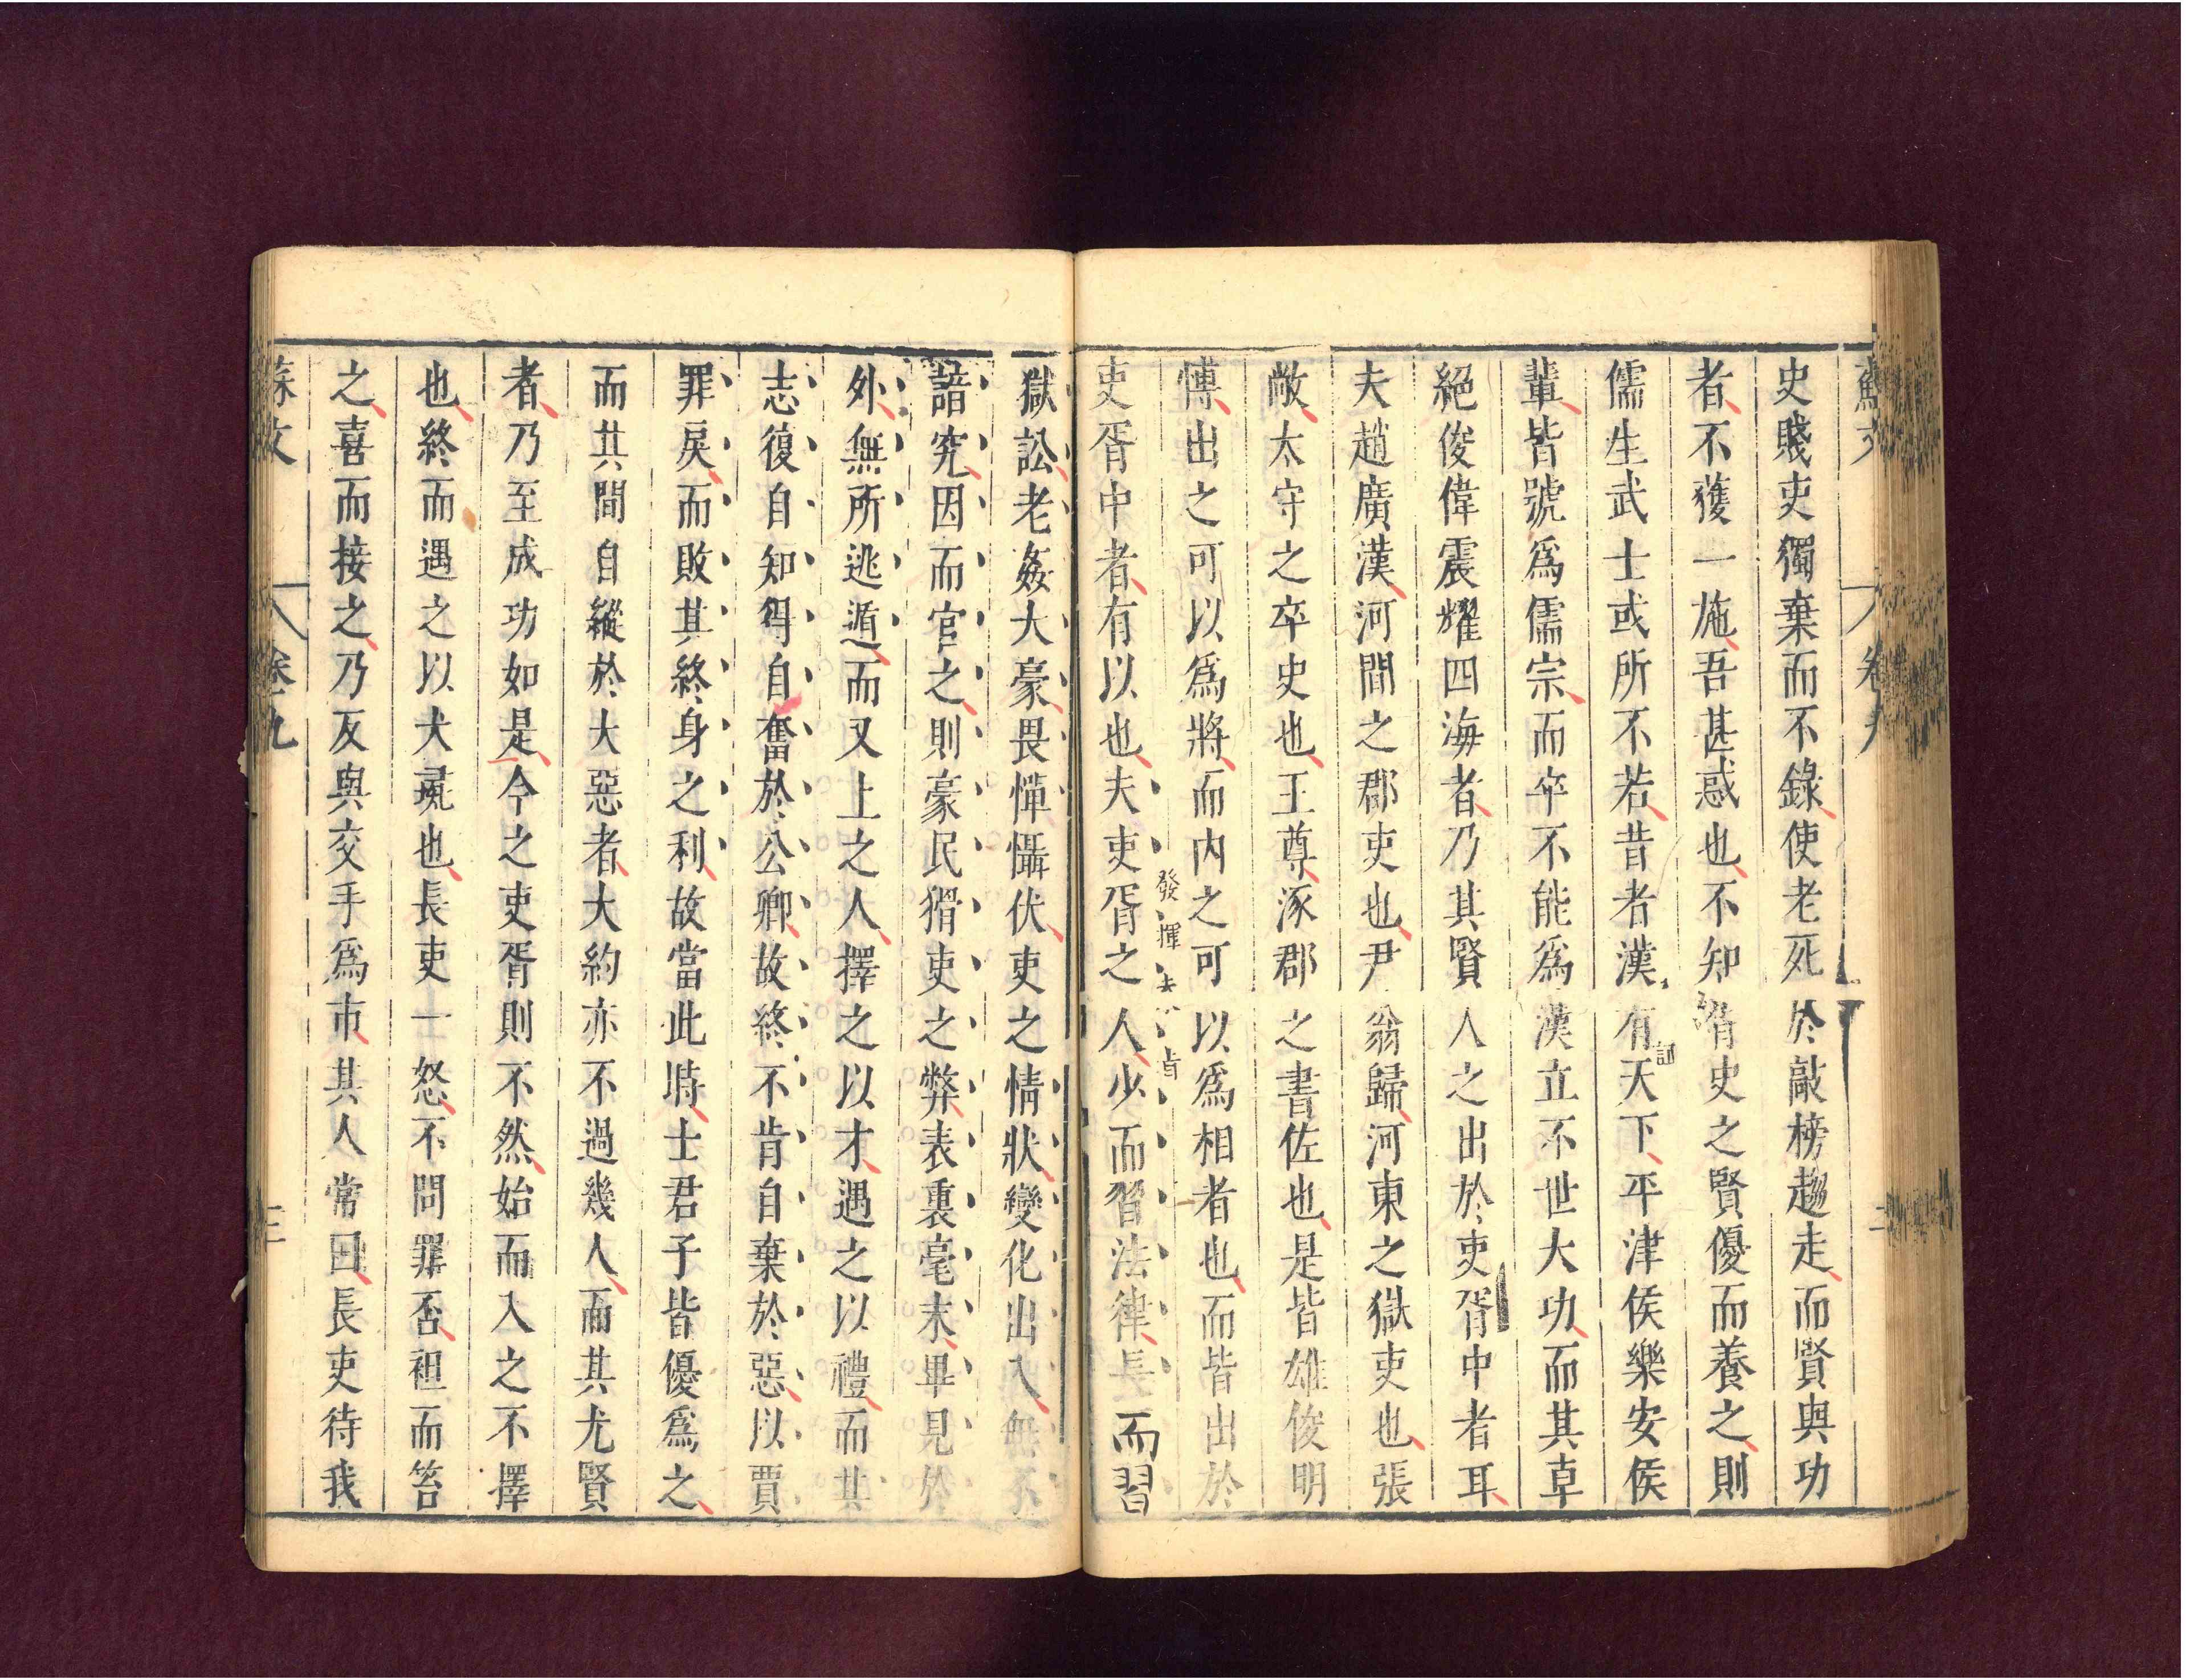 史賤吏獨棄而不錄使老死於敲榜趨走而賢與功
者不獲一施吾甚惑也不知胥吏之賢優而養之則
儒生武士或所不若昔者漢有天下平津侯樂安侯
輩皆號爲儒宗而卒不能爲漢立不世大功而其卓
絕俊偉震耀四海者乃其賢人之出於吏胥中者耳
夫趙廣漢河間之郡吏也尹翁歸河東之獄吏也張
敞太守之卒史也王尊涿郡之書佐也是皆雄俊明
博出之可以爲將而內之可以爲相者也而皆出於
發揮
吏胥中者有以也夫吏胥之人少而習法律長而習
獄訟老姦大豪畏憚懾伏吏之情狀變化出入無不
諳究因而官之則豪民猾吏之弊表裏毫末畢見於
外無所逃遁而又上之人擇之以才遇之以禮而其
志復自知得自奮於公卿故終不肯自棄於惡以賈
罪戾而敗其終身之利故當此時士君子皆優爲之
而其間自縱於大惡者大約亦不過幾人而其尤賢
者乃至成功如是今之吏胥則不然始而入之不擇
也終而遇之以犬彘也長吏一怒不問罪否袒而笞
之喜而接之乃反與交手爲市其人常曰長吏待我
蘇文 卷九 三